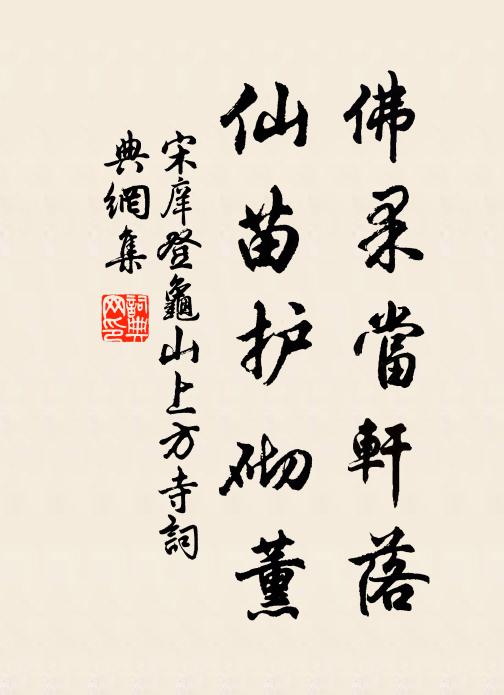 佛果當軒落
仙苗护砌薰
宋庠登龜山上方寺詞
典網集
詞典
网印